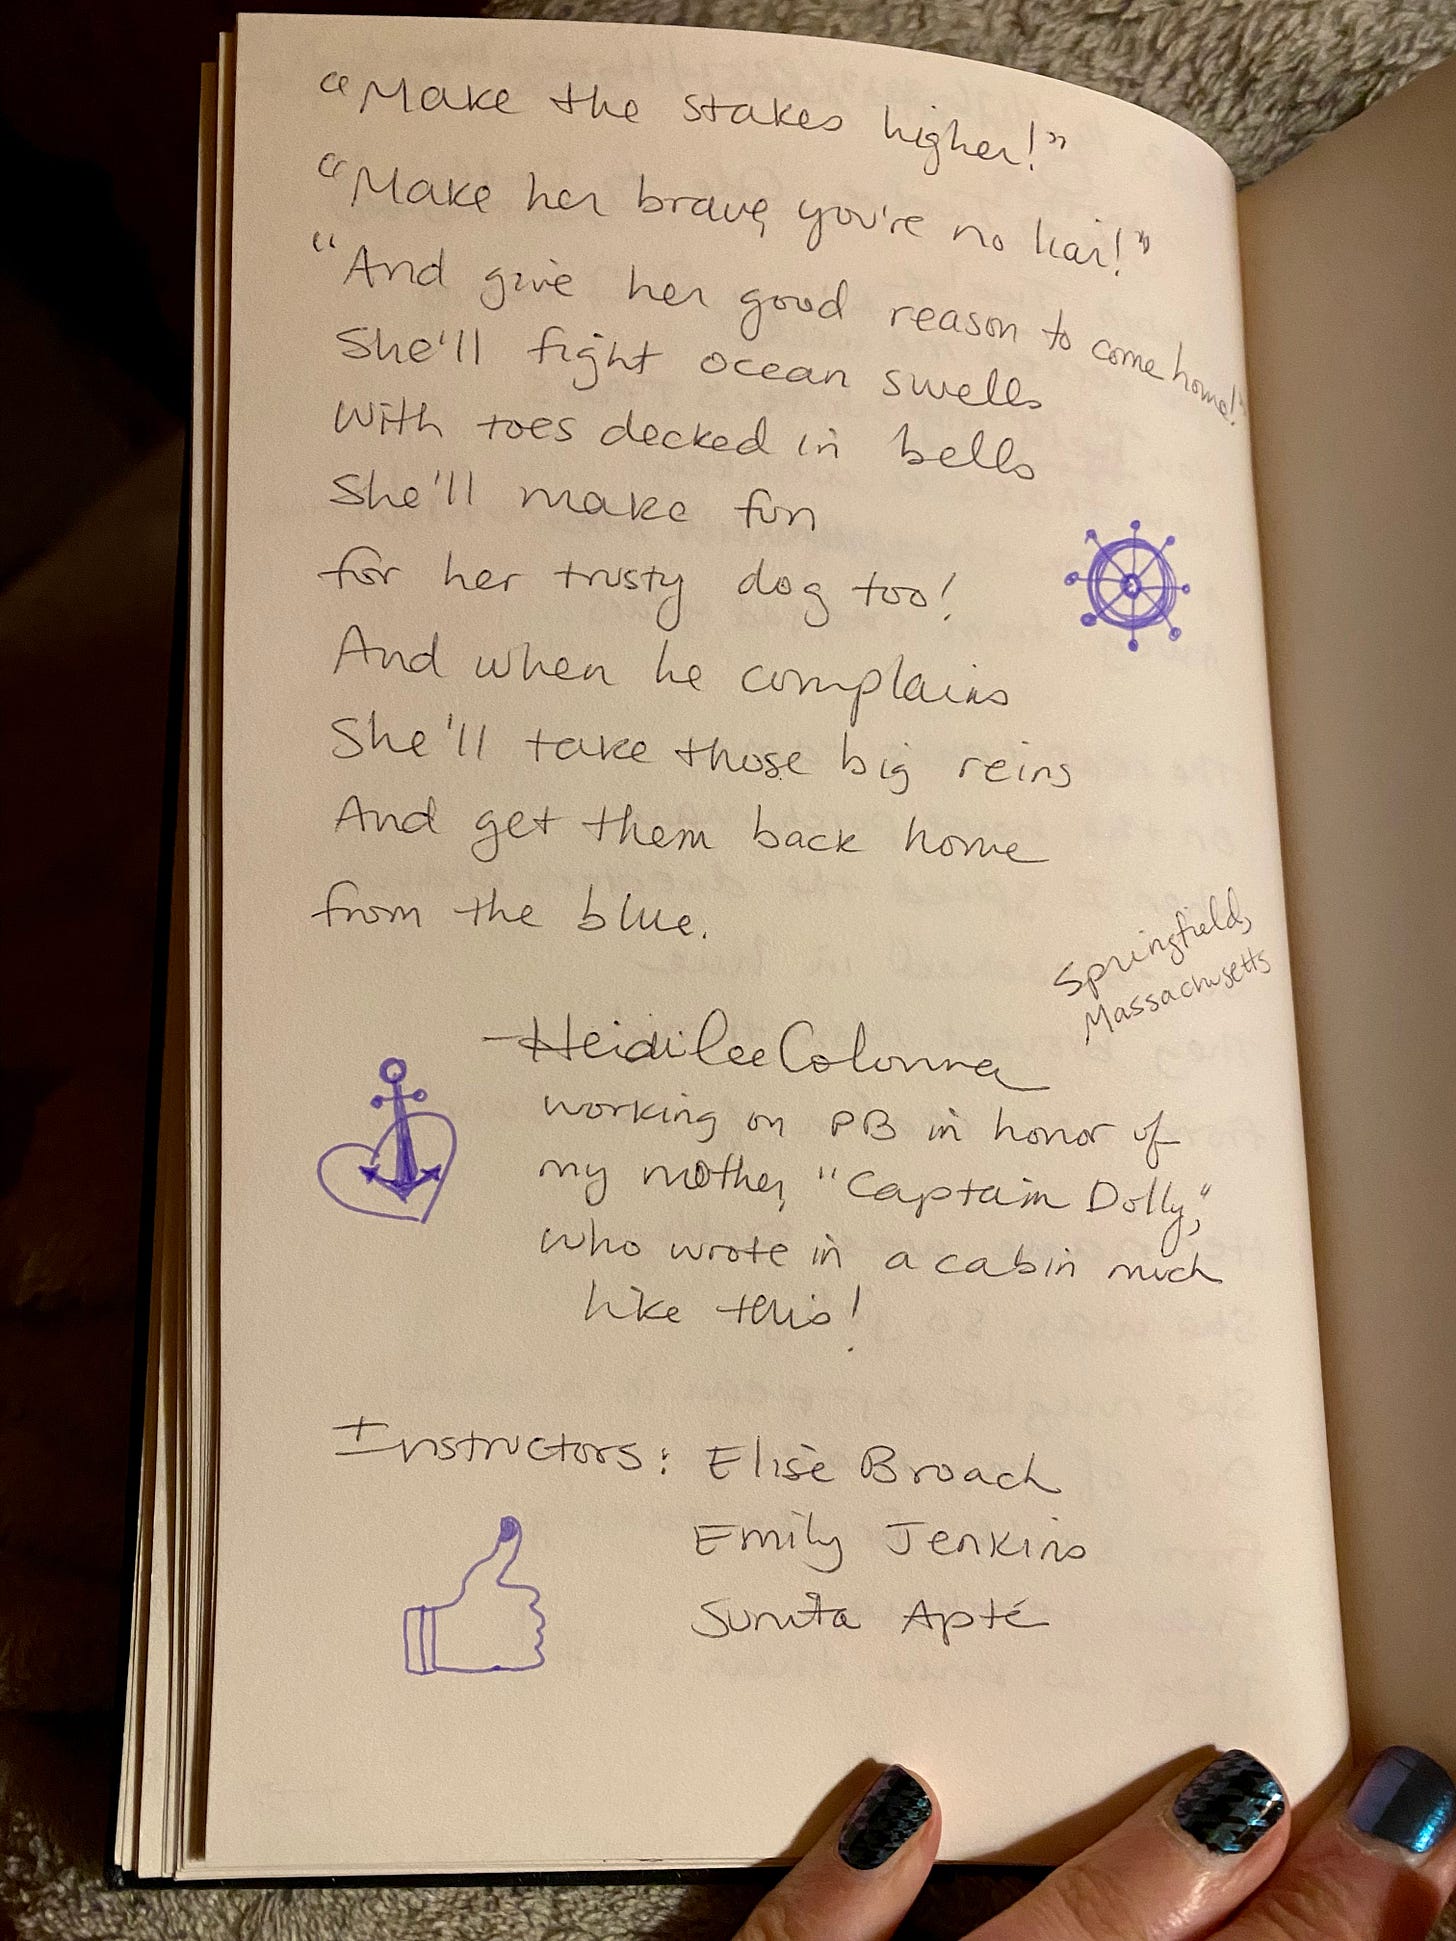 "Make the stakes higher!"
"Make her brave, you're no liar!"
"And give her good reason to come home!"
She'll fight ocean swells
With toes decked in bells
She'll make fun
for her trusty dog too!
And when he complains
She'll take those big reins
And get them back home
from the blue.
Springfield,
Massachusetts
—Heidi Lee Colonna
working on PB in honor of
my mother, "Captain Dolly,"
who wrote in a cabin much
like this!
Instructors: Elise Broach
Emily Jenkins
Sunita Apte